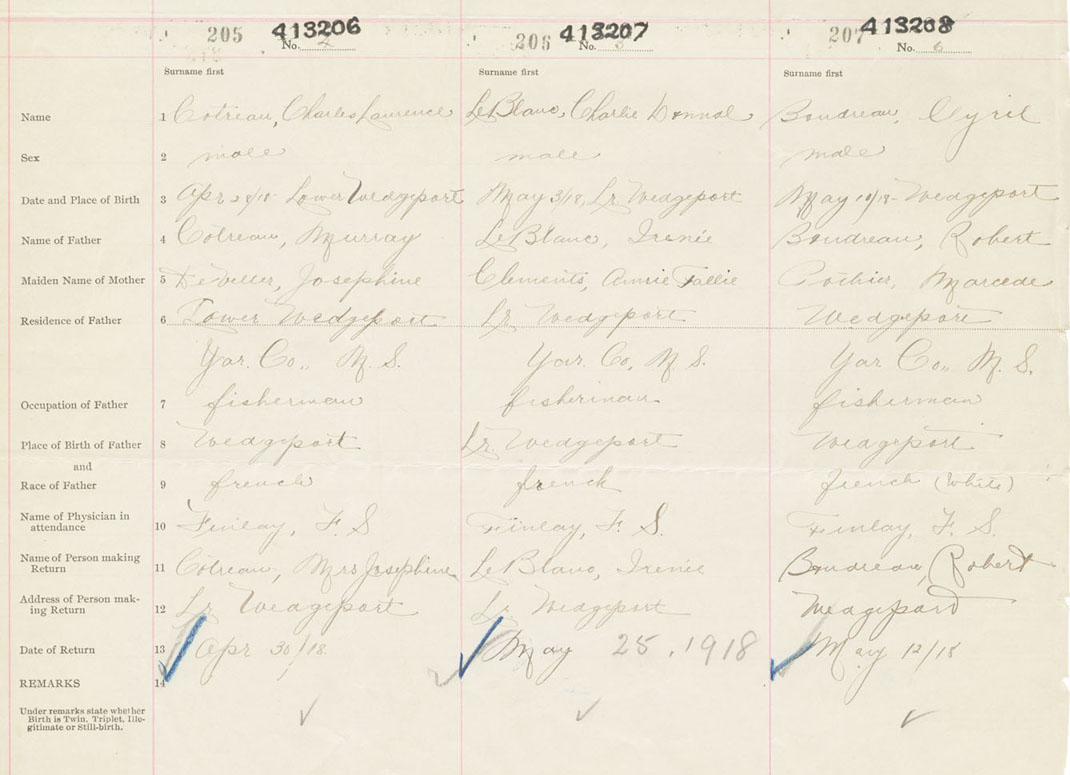 205 413206 206 413207 207 413208
No. 4 No. 5 No. 6
Surname first Surname first Surname first
Name 1 Cotreau, Charles Laurence LeBlanc, Charlie Boudreau, Cyril
Sex 2 male male male
Date and Place of Birth 3 Apr 28/18 Lower Wedgeport May 3/18, Lr. Wedgeport May 10/18 - Wedgeport
Name of Father 4 Cotreau, Murray LeBlanc, Irenie Boudreau, Robert
Maiden Name of Mother 5 DeViller, Josephine Clements, Annie Tallie Pothier, Marcede
Residence of Father 6 Lower Wedgeport Lr. Wedgeport Wedgeport
Yar. Co., N. S. Yar. Co, N. S. Yar Co., N. S.
Occupation of Father 7 fisherman fisherman fisherman
Place of Birth of Father 8 Wedgeport Lr. Wedgeport Wedgeport
and
Race of Father 9 french french french (White)
Name of Physician in
attendance 10 Finlay, F. S. Finlay, F. S. Finlay, F. S.
Name of Person making
Return 11 Cotreau, Mrs Josephine LeBlanc, Irenie Boudreau, Robert
Address of Person mak-
ing Return 12 Lr Wedgeport Lr Wedgeport Wedgeport
Date of Return 13 Apr 30/18 May 25, 1918 May 12/18
REMARKS 14
Under remarks state whether
Birth is Twin, Triplet, Ille-
gitimate or Still-birth.